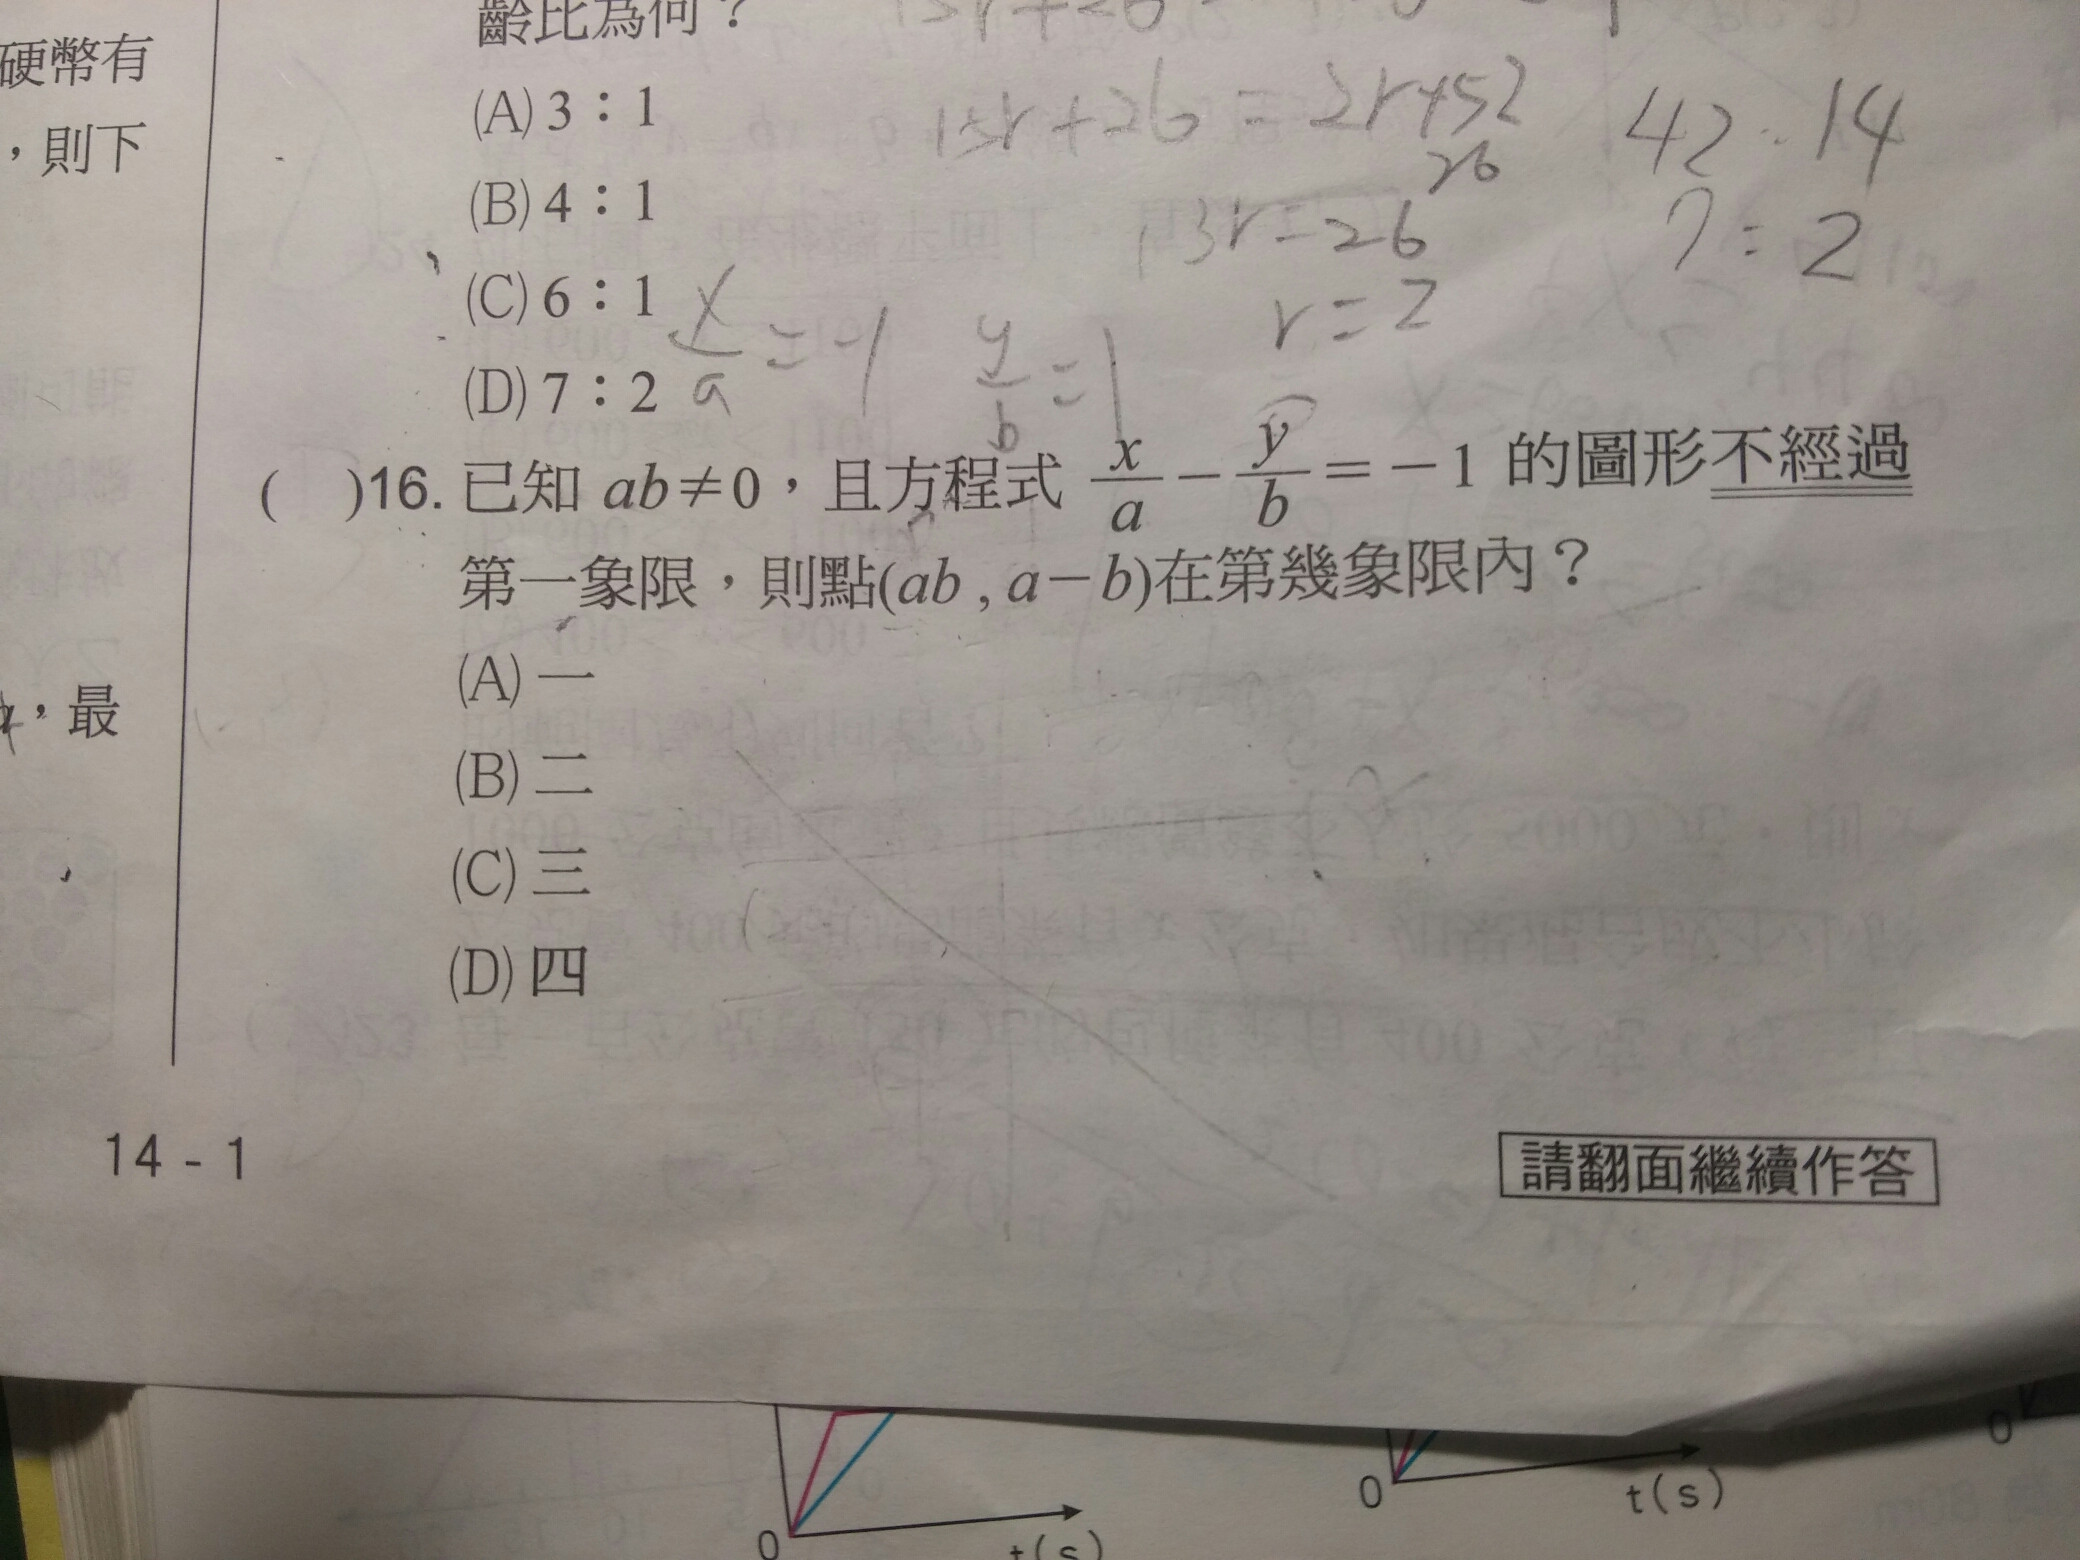 硬幣有
，則下
，最
齡比為何？
(A) 3：1
(B) 4：1
(C) 6：1
(D) 7：2
13r+26=2r+52
26
13r=26
r=2
42:14
7:2
x/a=-1
y/b=1
( )16. 已知 ab≠0，且方程式 x/a－y/b＝－1 的圖形不經過
第一象限，則點(ab , a－b)在第幾象限內？
(A) 一
(B) 二
(C) 三
(D) 四
14 - 1
請翻面繼續作答
0
t(s)
0
t(s)
0